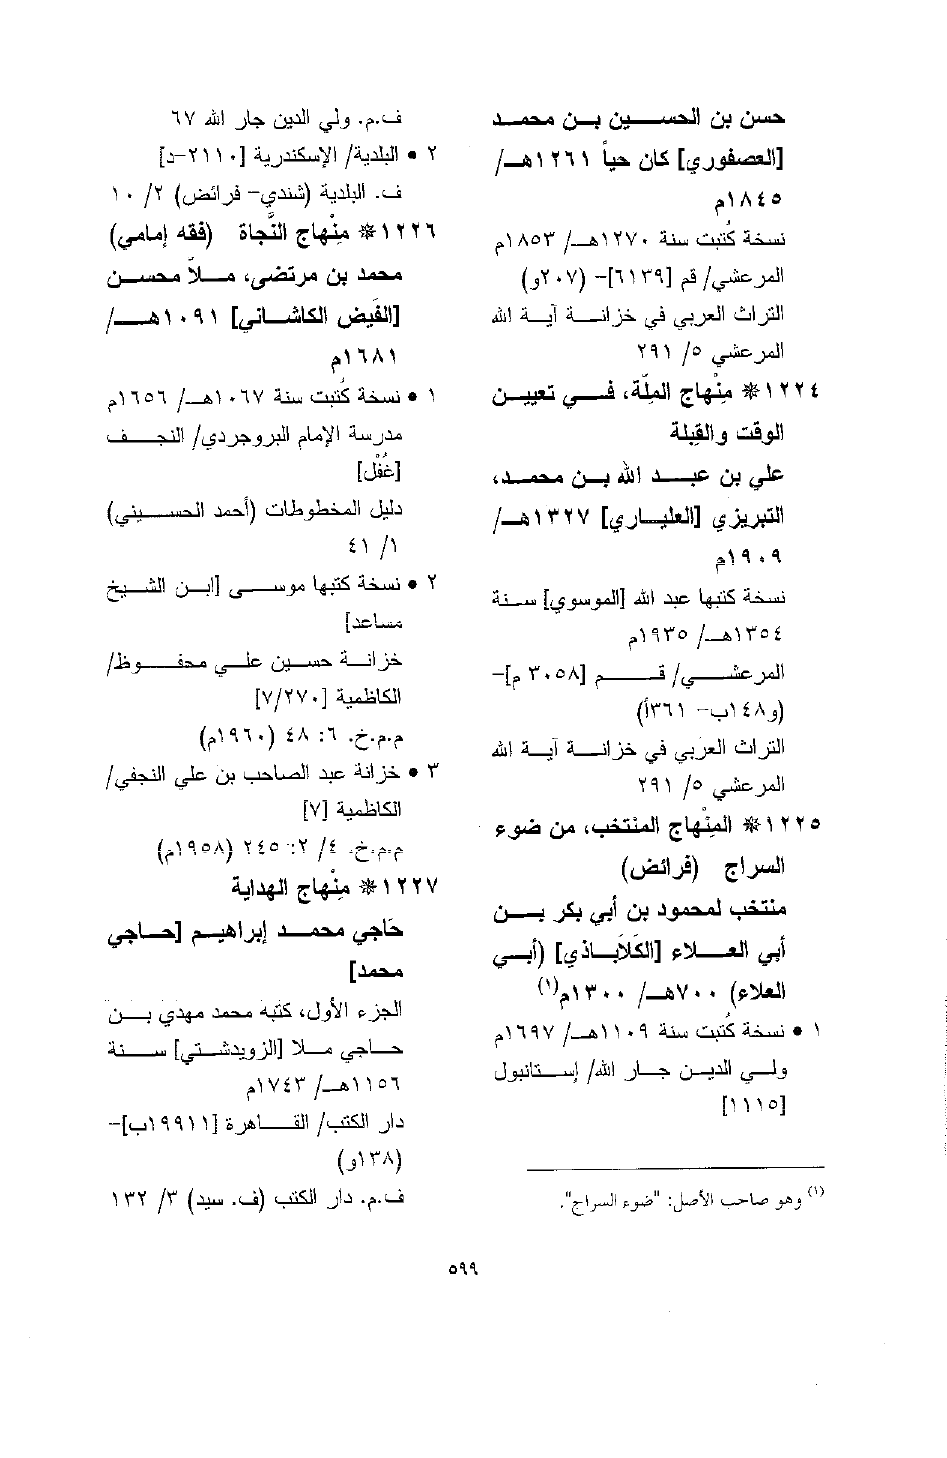 حسن بن الحسين بن محمد
[العصفوري] كان حياً ١٢٦١هـ/
١٨٤٥م
نسخة كُتبت سنة ١٢٧٠هـ/ ١٨٥٣م
المرعشي/ قم [٦١٣٩]- (٢٠٧و)
التراث العربي في خزانة آية الله
المرعشي ٥/ ٢٩١
١٢٢٤* مِنْهاج الملّة، في تعيين
الوقت والقبلة
علي بن عبد الله بن محمد،
التبريزي [العلياري] ١٣٢٧هـ/
١٩٠٩م
نسخة كتبها عبد الله [الموسوي] سنة
١٣٥٤هـ/ ١٩٣٥م
المرعشي/ قم [٣٠٥٨ م]-
(و١٤٨ب- ٣٦١أ)
التراث العربي في خزانة آية الله
المرعشي ٥/ ٢٩١
١٢٢٥* المِنْهاج المنتخب، من ضوء
السراج (فرائض)
منتخب لمحمود بن أبي بكر بن
أبي العلاء [الكَلاَباذي] (أبي
العلاء) ٧٠٠هـ/ ١٣٠٠م(١)
١ • نسخة كُتبت سنة ١١٠٩هـ/ ١٦٩٧م
ولي الدين جار الله/ إستانبول
[١١١٥]
(١) وهو صاحب الأصل: "ضوء السراج".
ف.م. ولي الدين جار الله ٦٧
٢ • البلدية/ الإسكندرية [٢١١٠-د]
ف. البلدية (شندي- فرائض) ٢/ ١٠
١٢٢٦* مِنْهاج النَّجاة (فقه إمامي)
محمد بن مرتضى، ملاّ محسن
[الفَيض الكاشاني] ١٠٩١هـ/
١٦٨١م
١ • نسخة كُتبت سنة ١٠٦٧هـ/ ١٦٥٦م
مدرسة الإمام البروجردي/ النجف
[غُفْل]
دليل المخطوطات (أحمد الحسيني)
١/ ٤١
٢ • نسخة كتبها موسى [ابن الشيخ
مساعد]
خزانة حسين علي محفوظ/
الكاظمية [٧/٢٧٠]
م.م.خ. ٦: ٤٨ (١٩٦٠م)
٣ • خزانة عبد الصاحب بن علي النجفي/
الكاظمية [٧]
م.م.خ. ٤/ ٢: ٢٤٥ (١٩٥٨م)
١٢٢٧* مِنْهاج الهداية
حَاجي محمد إبراهيم [حاجي
محمد]
الجزء الأول، كتبه محمد مهدي بن
حاجي ملا [الزويدشتي] سنة
١١٥٦هـ/ ١٧٤٣م
دار الكتب/ القاهرة [١٩٩١١ب]-
(١٣٨و)
ف.م. دار الكتب (ف. سيد) ٣/ ١٣٢
٥٩٩